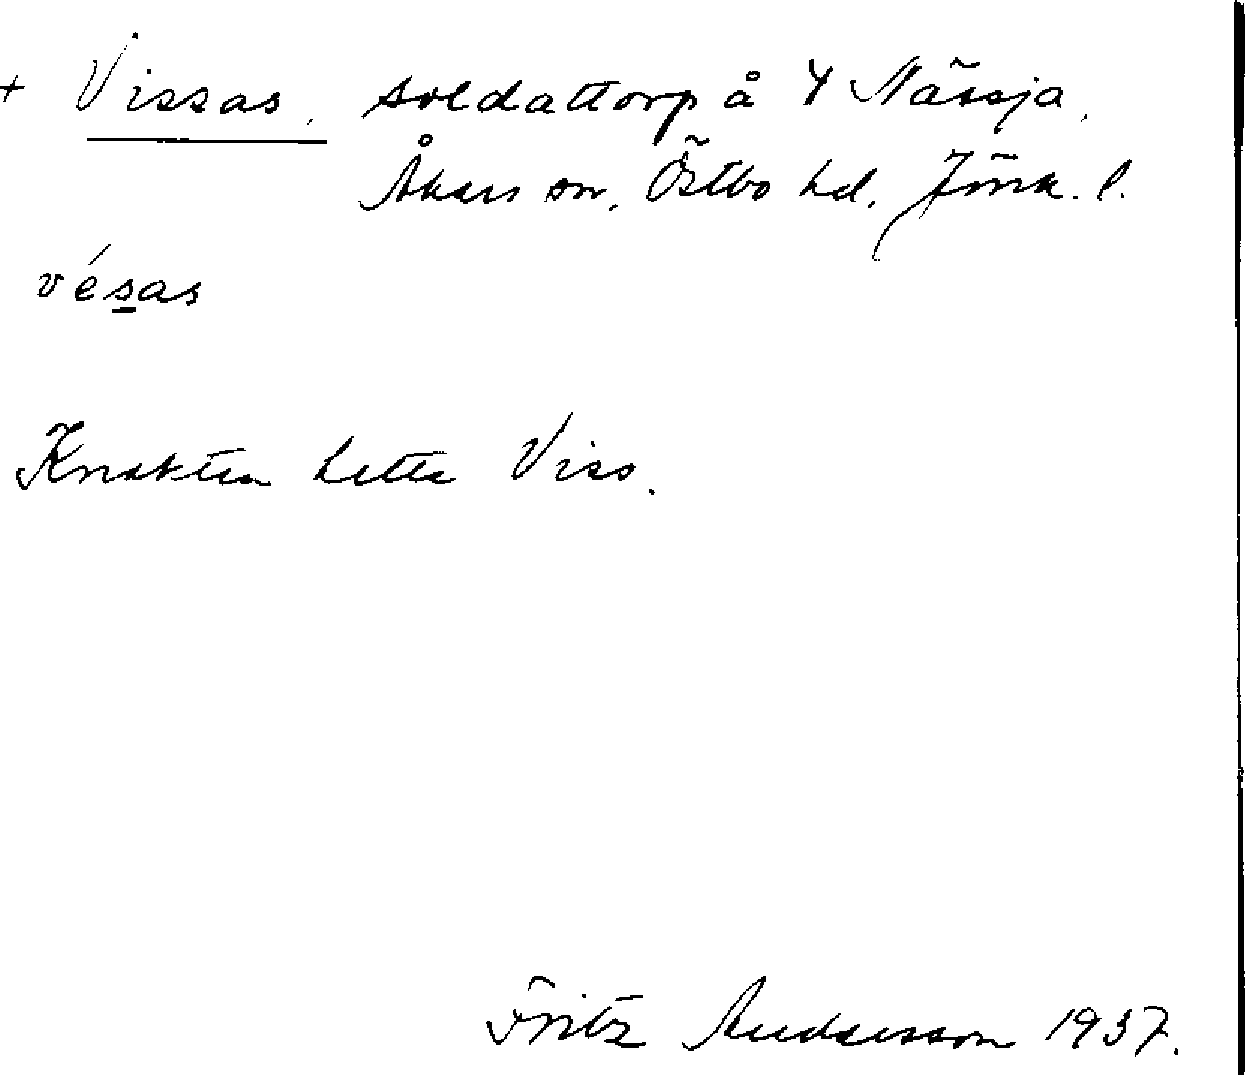 + Vissas, soldattorp å Y Nässja,
Åkers sn, Östbo hd, Jönk. l.
vésas
Knekten hette Viss.
Fritz Andersson 1937.